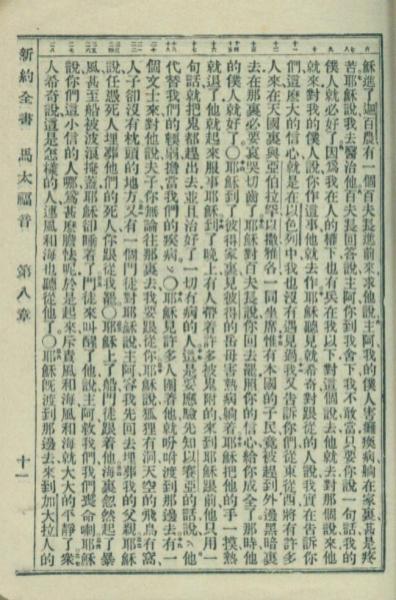 穌進了迦百農有一個百夫長進前來求他說主阿我的僕人害癱瘓病躺在家裏甚是疼
苦耶穌說我去醫治他百夫長回答說主阿你到我舍下我不敢當只要你說一句話我的
僕人就必好了因爲我在人的權下也有兵在我以下對這個說去他就去對那個說來他
就來對我的僕人說你作這事他就去作耶穌聽見就希奇對跟從的人說我實在告訴你
們這麼大的信心就是在以色列中我也沒有遇見過我又告訴你們從東從西將有許多
人來在天國裏與亞伯拉罕以撒雅各一同坐席惟有本國的子民竟被趕到外邊黑暗裏
去在那裏必要哀哭切齒了耶穌對百夫長說你回去罷照你的信心給你成全了那時他
的僕人就好了〇耶穌到了彼得家裏見彼得的岳母害熱病躺着耶穌把他的手一摸熱
就退了他就起來服事耶穌到了晚上有人帶着許多被鬼附的來到耶穌跟前他只用一
句話就把鬼都趕出去並且治好了一切有病的人這是要應驗先知以賽亞的話說他
代替我們的軟弱擔當我們的疾病〇耶穌見許多人圍着他就吩咐渡到那邊去有一
個文士來對他說夫子你無論往那裏去我要跟從你耶穌說狐狸有洞天空的飛鳥有窩
人子卻沒有枕頭的地方又有一個門徒對耶穌說主阿容我先回去埋葬我的父親耶穌
說任憑死人埋葬他們的死人你跟從我罷〇耶穌上了船門徒跟着他海裏忽然起了暴
風甚至船被波浪掩蓋耶穌卻睡着了門徒來叫醒了他說主阿救我們我們喪命喇耶穌
說你們這小信的人哪爲甚麼膽怯呢於是起來斥責風和海風和海就大大的平靜了衆
人希奇說這是怎樣的人連風和海也聽從他了〇耶穌旣渡到那邊去來到加大拉人的
新約全書 馬太福音 第八章 十一